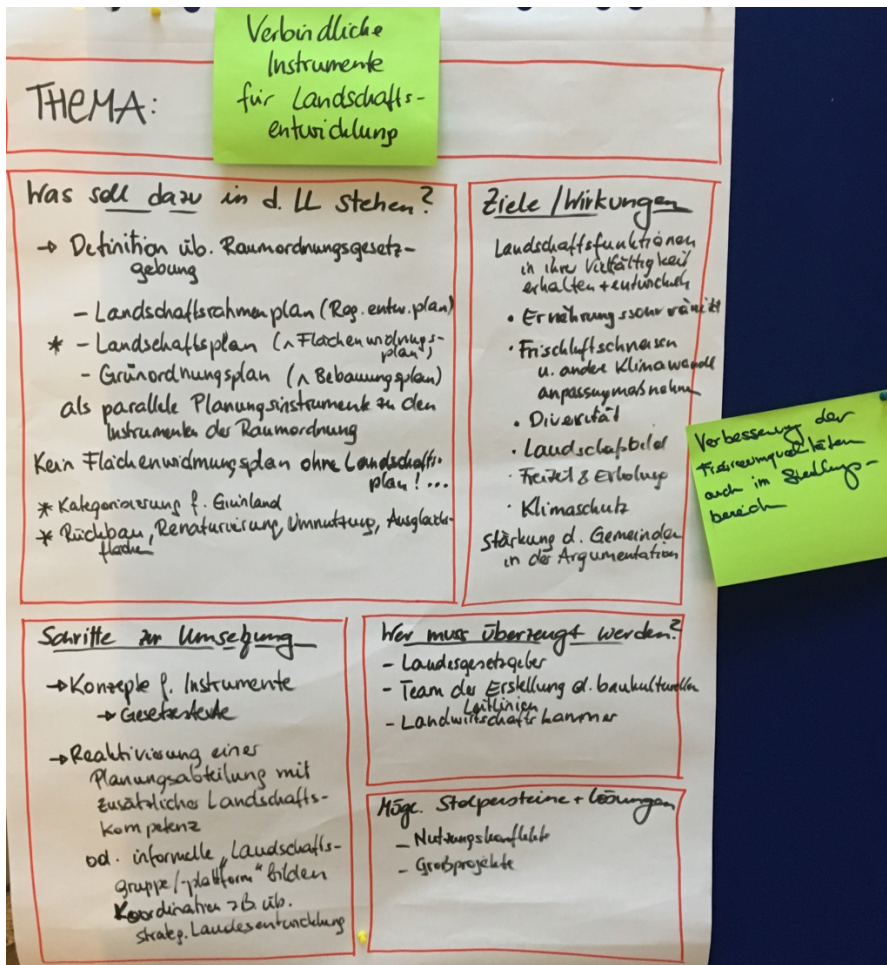 Verbindliche
Instrumente
für Landschafts-
entwicklung
THEMA:
Was soll dazu in d. LL stehen?
→ Definition üb. Raumordnungsgesetz-
gebung
- Landschaftsrahmenplan (Reg.entw.plan)
* - Landschaftsplan (^ Flächenwidmungs-
plan)
- Grünordnungsplan (^ Bebauungsplan)
als parallele Planungsinstrumente zu den
Instrumenten der Raumordnung
Kein Flächenwidmungsplan ohne Landschafts-
plan! ...
* Kategorisierung f. Grünland
* Rückbau, Renaturierung, Umnutzung, Ausgleichs-
flächen
Ziele / Wirkungen
Landschaftsfunktionen
in ihrer Vielfältigkeit
erhalten + entwickeln
• Ernährungssouveränität
• Frischluftschneisen
u. andere Klimawandel
anpassungmaßnahmen
• Diversität
• Landschaftsbild
• Freizeit & Erholung
• Klimaschutz
Stärkung d. Gemeinden
in der Argumentation
Verbesserung der
Freiraumqualitäten
auch im Siedlungs-
bereich
Schritte zur Umsetzung
→ Konzepte f. Instrumente
→ Gesetzestexte
→ Reaktivierung einer
Planungsabteilung mit
zusätzlicher Landschafts-
kompetenz
od. informelle „Landschafts-
gruppe/-plattform" bilden
Koordination zB. üb.
strateg. Landesentwicklung
Wer muss überzeugt werden?
- Landesgesetzgeber
- Team der Erstellung d. baukulturellen
Leitlinien
- Landwirtschaftskammer
Mögl. Stolpersteine + Lösungen
- Nutzungskonflikte
- Großprojekte